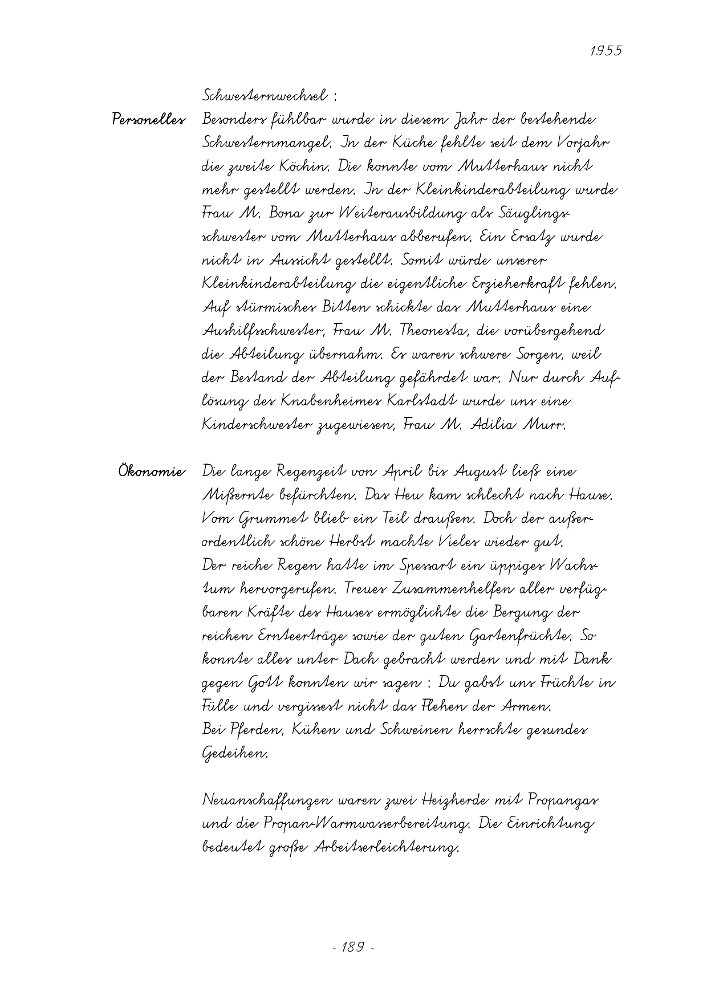 1955
Schwesternwechsel :
Personelles Besonders fühlbar wurde in diesem Jahr der bestehende
Schwesternmangel. In der Küche fehlte seit dem Vorjahr
die zweite Köchin. Die konnte vom Mutterhaus nicht
mehr gestellt werden. In der Kleinkinderabteilung wurde
Frau M. Bona zur Weiterausbildung als Säuglings-
schwester vom Mutterhaus abberufen. Ein Ersatz wurde
nicht in Aussicht gestellt. Somit würde unserer
Kleinkinderabteilung die eigentliche Erzieherkraft fehlen.
Auf stürmisches Bitten schickte das Mutterhaus eine
Aushilfsschwester, Frau M. Theonesta, die vorübergehend
die Abteilung übernahm. Es waren schwere Sorgen, weil
der Bestand der Abteilung gefährdet war. Nur durch Auf-
lösung des Knabenheimes Karlstadt wurde uns eine
Kinderschwester zugewiesen, Frau M. Adilia Murr.
Ökonomie Die lange Regenzeit von April bis August ließ eine
Mißernte befürchten. Das Heu kam schlecht nach Hause.
Vom Grummet blieb ein Teil draußen. Doch der außer-
ordentlich schöne Herbst machte Vieles wieder gut.
Der reiche Regen hatte im Spessart ein üppiges Wachs-
tum hervorgerufen. Treues Zusammenhelfen aller verfüg-
baren Kräfte des Hauses ermöglichte die Bergung der
reichen Ernteerträge sowie der guten Gartenfrüchte. So
konnte alles unter Dach gebracht werden und mit Dank
gegen Gott konnten wir sagen : Du gabst uns Früchte in
Fülle und vergissest nicht das Flehen der Armen.
Bei Pferden, Kühen und Schweinen herrschte gesundes
Gedeihen.
Neuanschaffungen waren zwei Heizherde mit Propangas
und die Propan-Warmwasserbereitung. Die Einrichtung
bedeutet große Arbeitserleichterung.
- 189 -